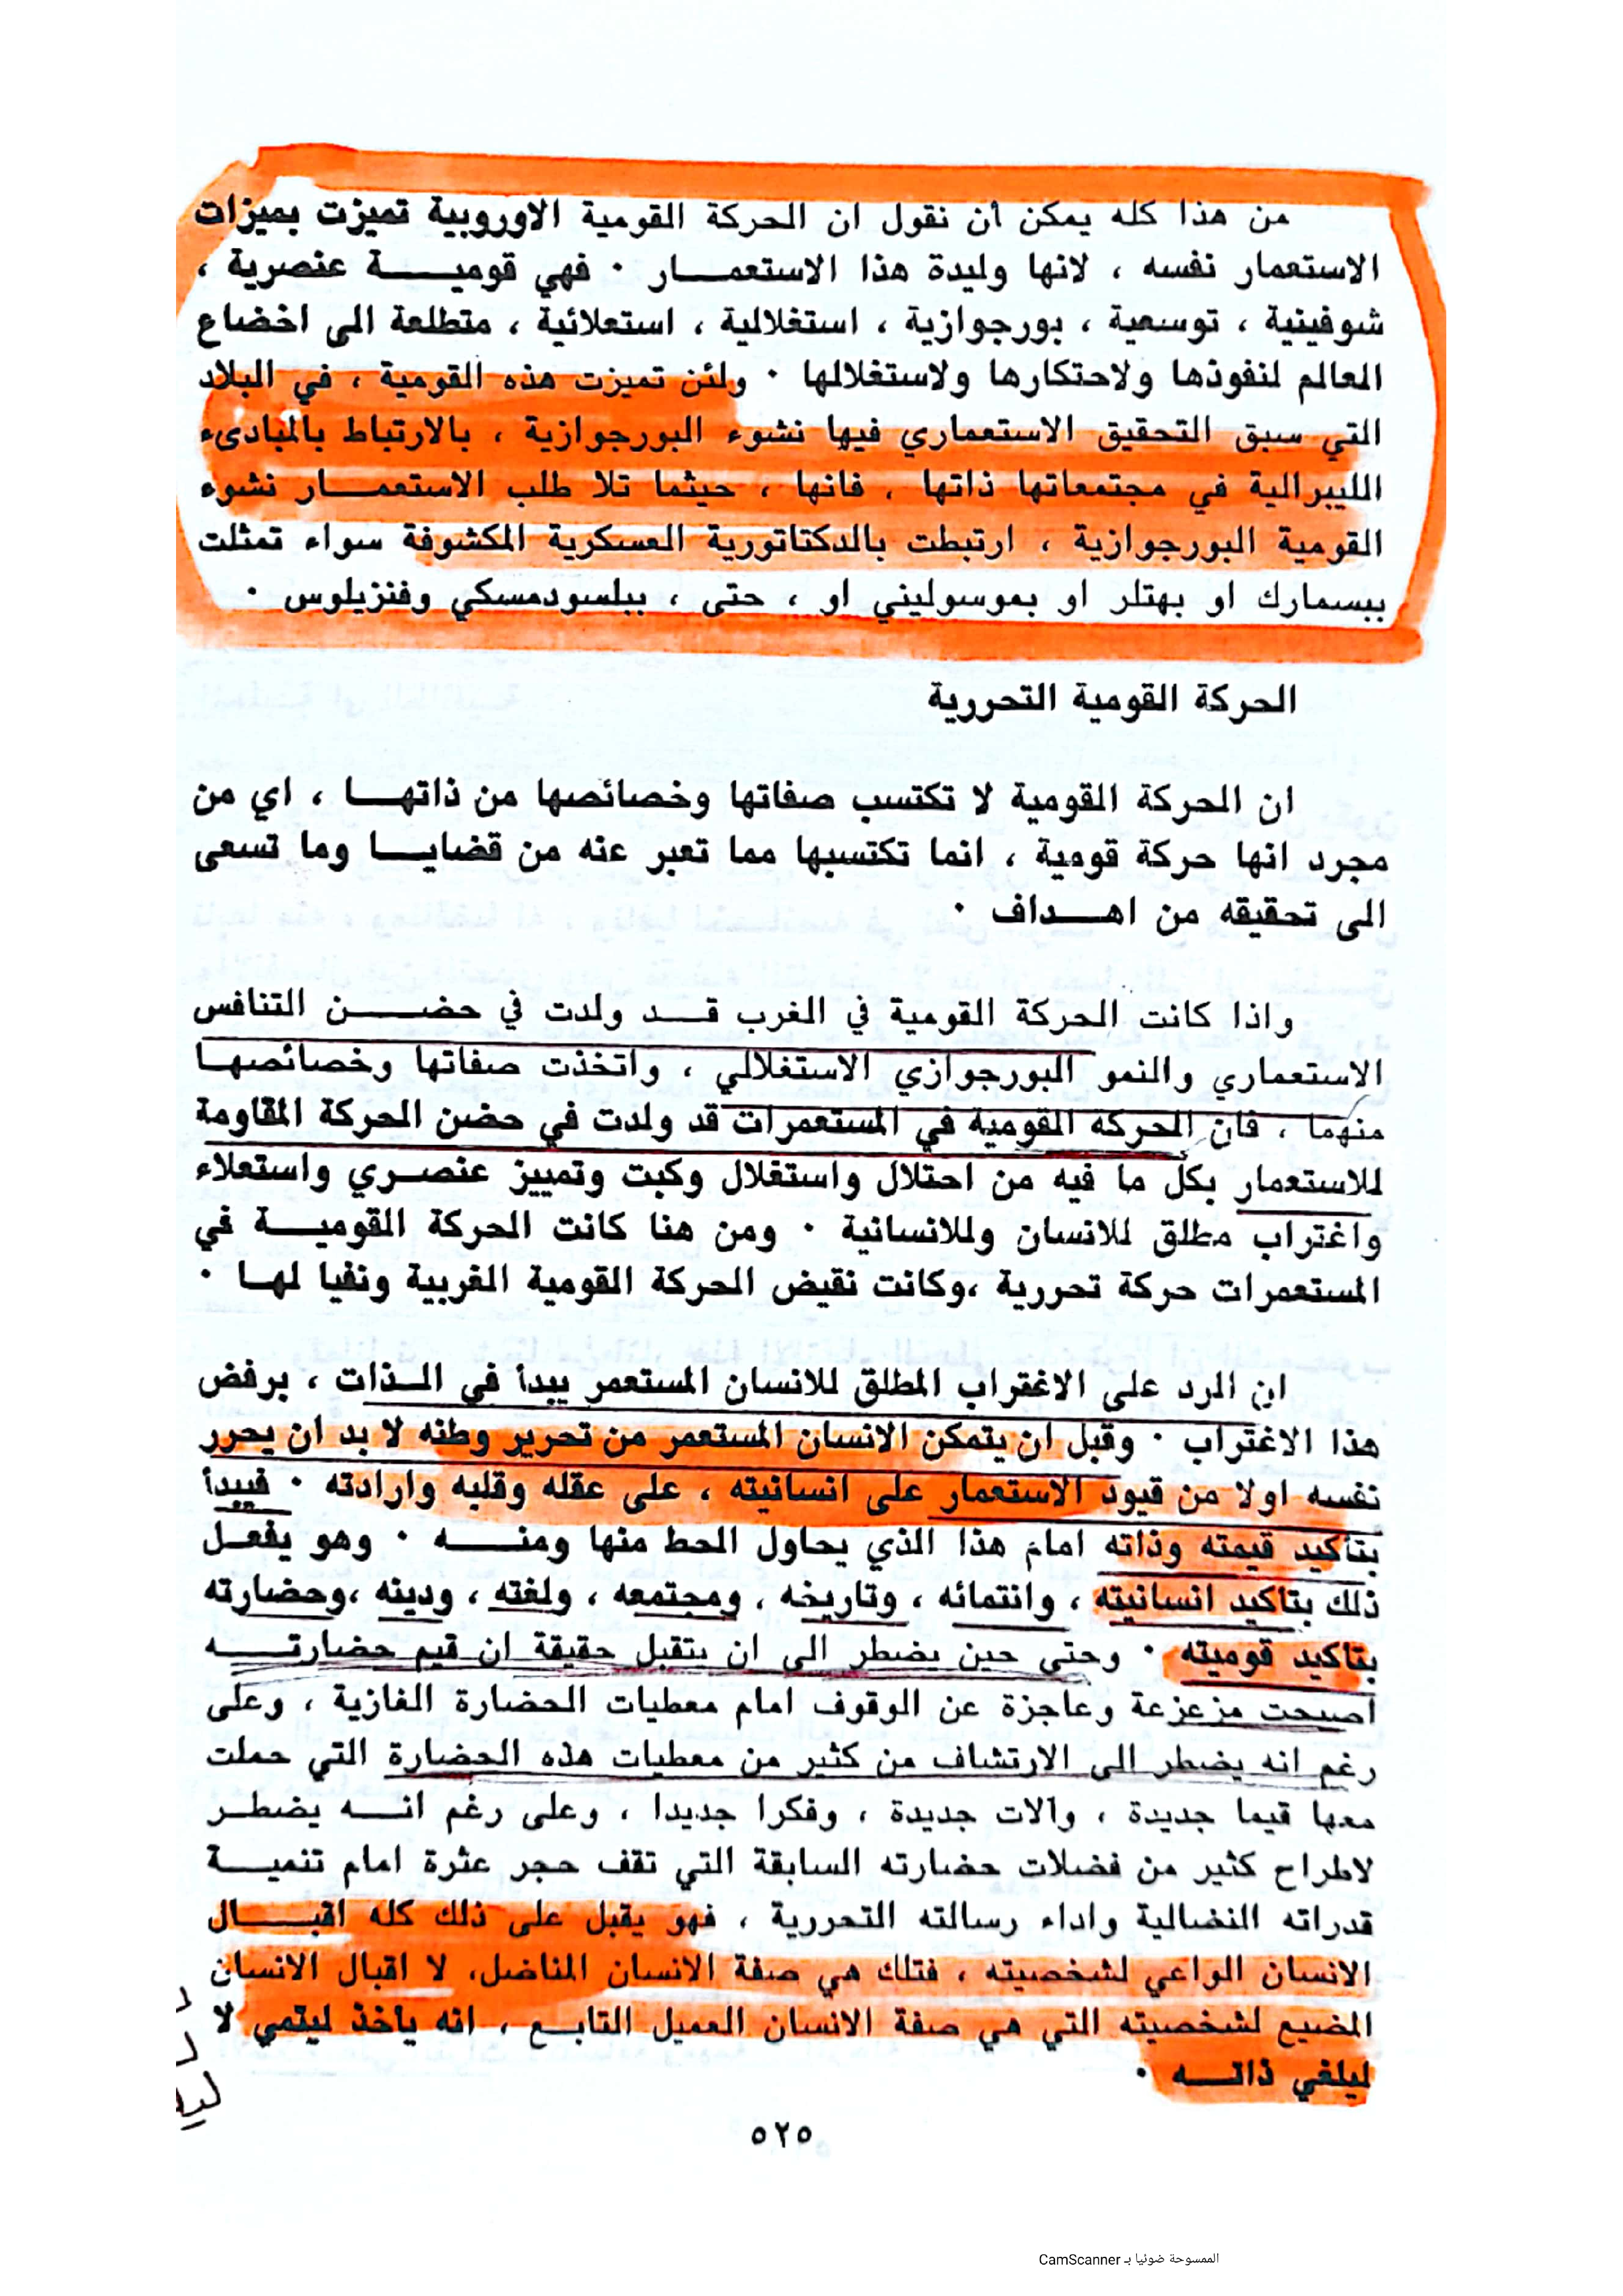 من هذا كله يمكن أن نقول ان الحركة القومية الاوروبية تميزت بميزات
الاستعمار نفسه ، لانها وليدة هذا الاستعمـــار ٠ فهي قوميـــة عنصرية ،
شوفينية ، توسعية ، بورجوازية ، استغلالية ، استعلائية ، متطلعة الى اخضاع
العالم لنفوذها ولاحتكارها ولاستغلالها ٠ ولئن تميزت هذه القومية ، في البلاد
التي سبق التحقيق الاستعماري فيها نشوء البورجوازية ، بالارتباط بالمبادىء
الليبرالية في مجتمعاتها ذاتها ، فانها ، حيثما تلا طلب الاستعمـــار نشوء
القومية البورجوازية ، ارتبطت بالدكتاتورية العسكرية المكشوفة سواء تمثلت
ببسمارك او بهتلر او بموسوليني او ، حتى ، ببلسودمسكي وفنزيلوس ٠
الحركة القومية التحررية
ان الحركة القومية لا تكتسب صفاتها وخصائصها من ذاتهـــا ، اي من
مجرد انها حركة قومية ، انما تكتسبها مما تعبر عنه من قضايـــا وما تسعى
الى تحقيقه من اهـــداف ٠
واذا كانت الحركة القومية في الغرب قـــد ولدت في حضـــن التنافس
الاستعماري والنمو البورجوازي الاستغلالي ، واتخذت صفاتها وخصائصهـــا
منهما ، فان الحركه القومية في المستعمرات قد ولدت في حضن الحركة المقاومة
للاستعمار بكل ما فيه من احتلال واستغلال وكبت وتمييز عنصـري واستعلاء
واغتراب مطلق للانسان وللانسانية ٠ ومن هنا كانت الحركة القوميـــة في
المستعمرات حركة تحررية ،وكانت نقيض الحركة القومية الغربية ونفيا لهـا ٠
ان المرد على الاغتراب المطلق للانسان المستعمر يبدأ في الـذات ، برفض
هذا الاغتراب ٠ وقبل ان يتمكن الانسان المستعمر من تحرير وطنه لا بد ان يحرر
نفسه اولا من قيود الاستعمار على انسانيته ، على عقله وقلبه وارادته ٠ فيبدأ
بتاكيد قيمته وذاته امام هذا الذي يحاول الحط منها ومنـــه ٠ وهو يفعـل
ذلك بتاكيد انسانيته ، وانتمائه ، وتاريخه ، ومجتمعه ، ولغته ، ودينه ،وحضارته
بتاكيد قوميته ٠ وحتى حين يضطر الى ان يتقبل حقيقة ان قيم حضارتـــه
اصبحت مزعزعة وعاجزة عن الوقوف امام معطيات الحضارة الغازية ، وعلى
رغم انه يضطر الى الارتشاف من كثير من معطيات هذه الحضارة التي حملت
معها قيما جديدة ، وآلات جديدة ، وفكرا جديدا ، وعلى رغم انـــه يضطـر
لاطراح كثير من فضلات حضارته السابقة التي تقف حجر عثرة امام تنميـــة
قدراته النضالية واداء رسالته التحررية ، فهو يقبل على ذلك كله اقبـــال
الانسان الواعي لشخصيته ، فتلك هي صفة الانسان المناضل، لا اقبال الانسان
المضيع لشخصيته التي هي صفة الانسان العميل التابـــع ، انه يأخذ ليتمي لا
ليلغي ذاتـــه ٠
٥٢٥
الممسوحة ضوئيا بـ CamScanner